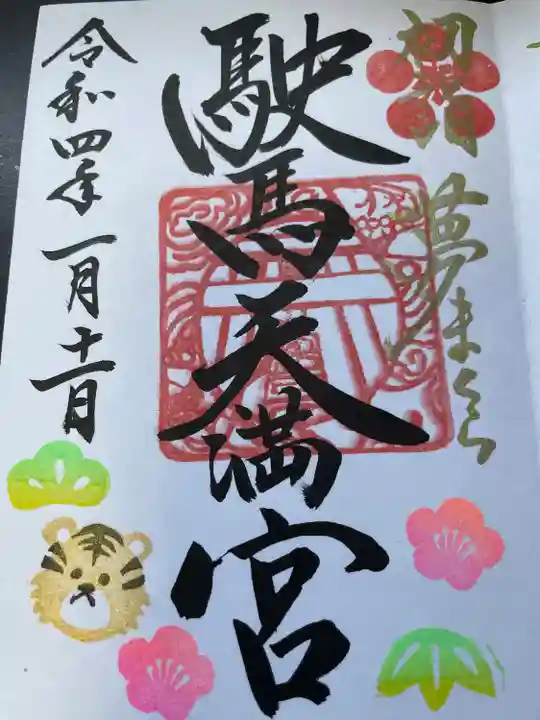 初詣
夢まくら
駛馬天満宮
令和四年一月十一日